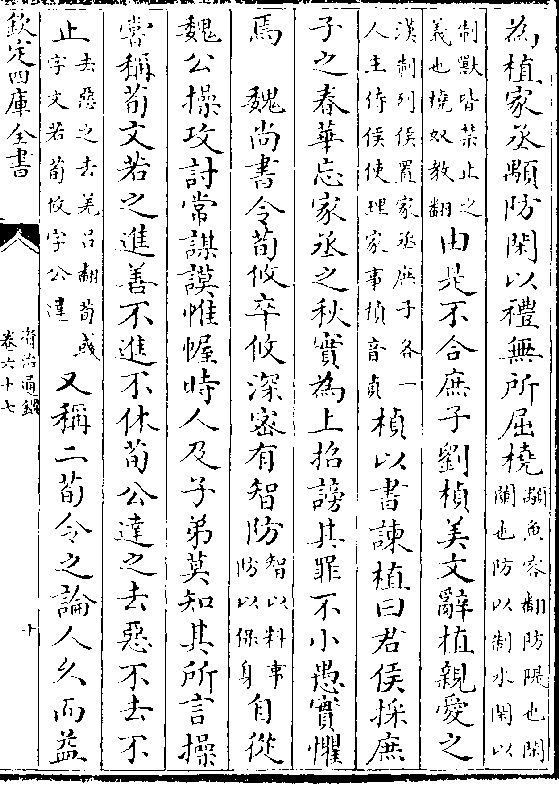 為植家丞顒防閑以禮無所屈橈顒魚容翻防隄也閑
闌也防以制水閑以
制獸皆禁止之
義也橈奴教翻由是不合庶子劉楨美文辭植親愛之
漢制列侯置家丞庶子各一
人主侍侯使理家事楨音貞楨以書諫植曰君侯採庶
子之春華忘家丞之秋實為上招謗其罪不小愚實懼
焉　魏尚書令荀攸卒攸深密有智防智以料事
防以保身自從
魏公操攻討常謀謨惟幄時人及子弟莫知其所言操
嘗稱荀文若之進善不進不休荀公達之去惡不去不
止去惡之去羌呂翻荀彧
字文若荀攸字公達又稱二荀令之論人久而益
欽定四庫全書
資治通鑑
卷六十七
十